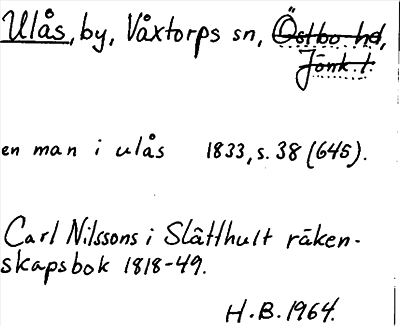 Ulås, by, Våxtorps sn, Östbo hd,
Jönk. l.
en man i ulås 1833, s. 38 (645).
Carl Nilssons i Slätthult räken-
skapsbok 1818-49.
H.B. 1964.